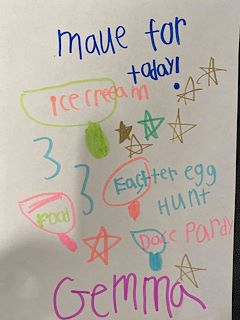 maue for
today!
Ice creeam
3
3
Eactter egg
Hunt
Food
Dacc Pardy
Gemma